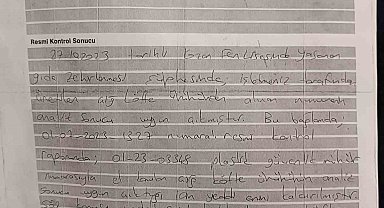 Resmi Kontrol Sonucu
27.10.2023 tarihli Kozan Fen Lisesinde yaşanan
gıda zehirlenmesi şüphesinde, işletmeniz tarafından
üretilen çiğ köfte ürününden alınan numunenin
analiz sonucu uygun çıkmıştır. Bu bağlamda;
01-07-2023-1327 numaralı resmi kontrol
raporunda; 01-23-03548 plastik güvenlik mühür
numarasıyla el konulan çiğ köfte ürününün analiz
sonucu uygun çıktığı için yeddi emin kaldırılmıştır.